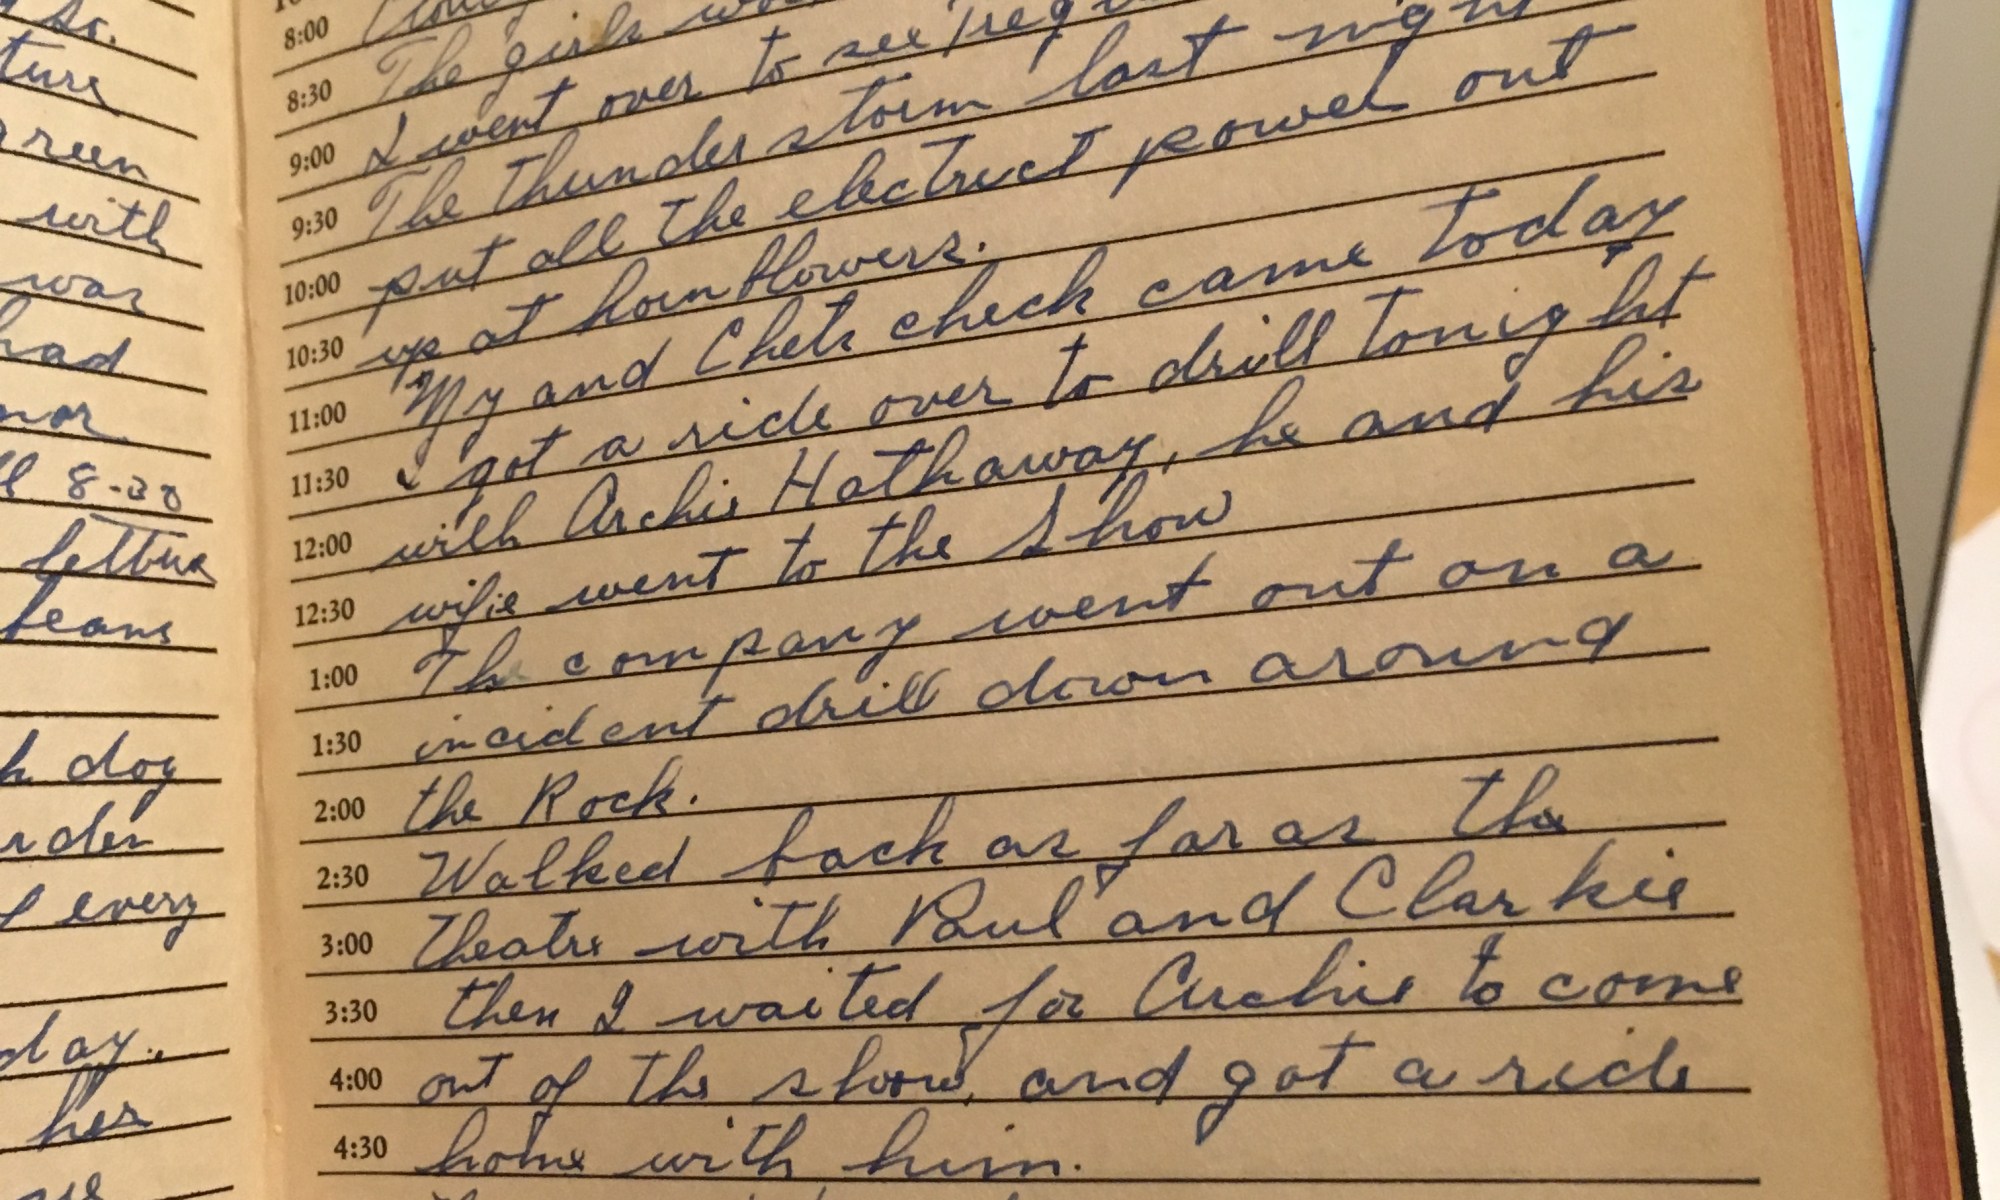 so.
ture
reen
with
was
had
nor
8-30
lettuce
beans
dog
every
day.
her
8:00
8:30 The girls
9:00 I went over to see
9:30 The thunder storm last night
10:00 put all the electrict power out
10:30 up at hornblowers.
11:00 My and Chets check came today
11:30 I got a ride over to drill tonight
12:00 with Archie Hathaway, he and his
12:30 wifie went to the Show
1:00 The company went out on a
1:30 incident drill down around
2:00 the Rock.
2:30 Walked back as far as the
3:00 theatre with Paul and Clarkie
3:30 then I waited for Archie to come
4:00 out of the show, and got a ride
4:30 home with him.